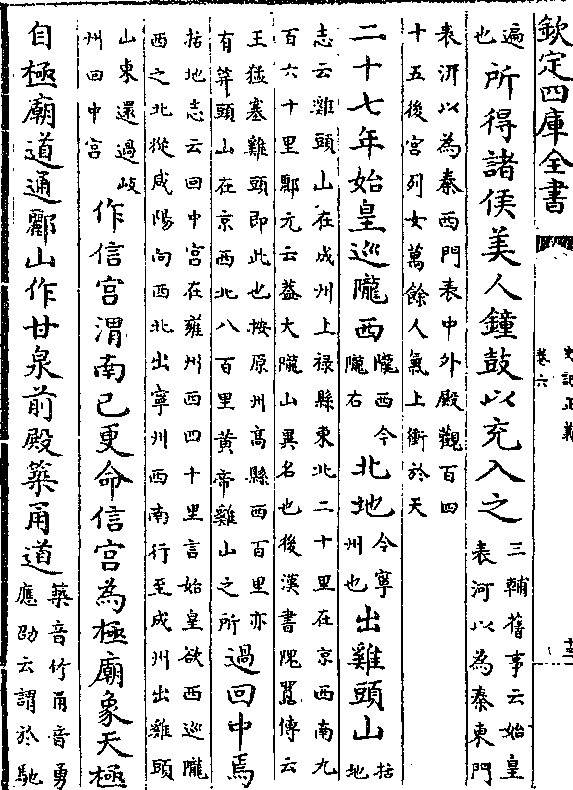 欽定四庫全書
史記正義
卷六
遍也所得諸侯美人鐘鼓以充入之三輔舊事云始皇表河以為秦東門
表汧以為秦西門表中外殿觀百四十五後宮列女萬餘人氣上衝於天
二十七年始皇巡隴西隴西今隴右北地今寧州也出雞頭山括地
志云雞頭山在成州上祿縣東北二十里在京西南九百六十里酈元云蓋大隴山異名也後漢書隗囂傳云
王猛塞雞頭即此也按原州高縣西百里亦有笄頭山在京西北八百里黄帝雞山之所過回中焉
括地志云回中宮在雍州西四十里言始皇欲西巡隴西之北從咸陽向西北出寧州西南行至成州出雞頭
山東還過岐州回中宮作信宮渭南已更命信宮為極廟象天極
自極廟道通酈山作甘泉前殿築甬道築音竹甬音勇應劭云謂於馳